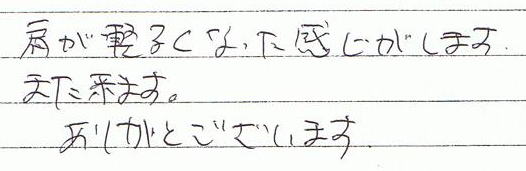 肩が軽るくなった感じがします.
また来ます。
ありがとございます.